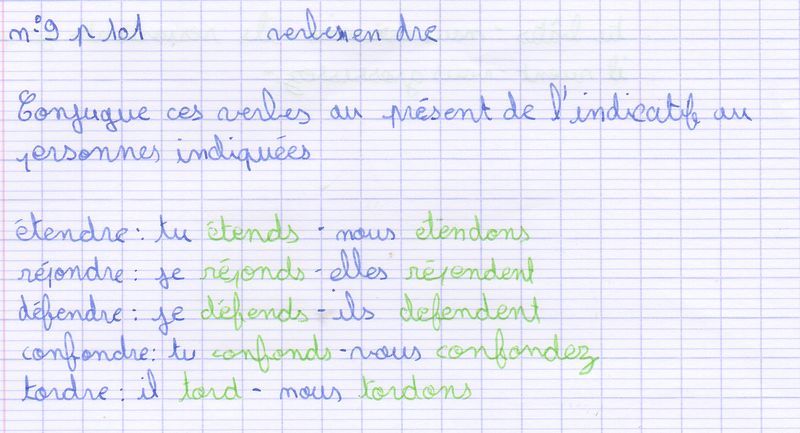 n°9 p 101 verbes en dre
Conjugue ces verbes au présent de l'indicatif au
personnes indiquées
étendre : tu étends - nous etendons
répondre : je réponds - elles répendent
défendre : je défends - ils defendent
confondre : tu confonds - vous confondez
tordre : il tord - nous tordons